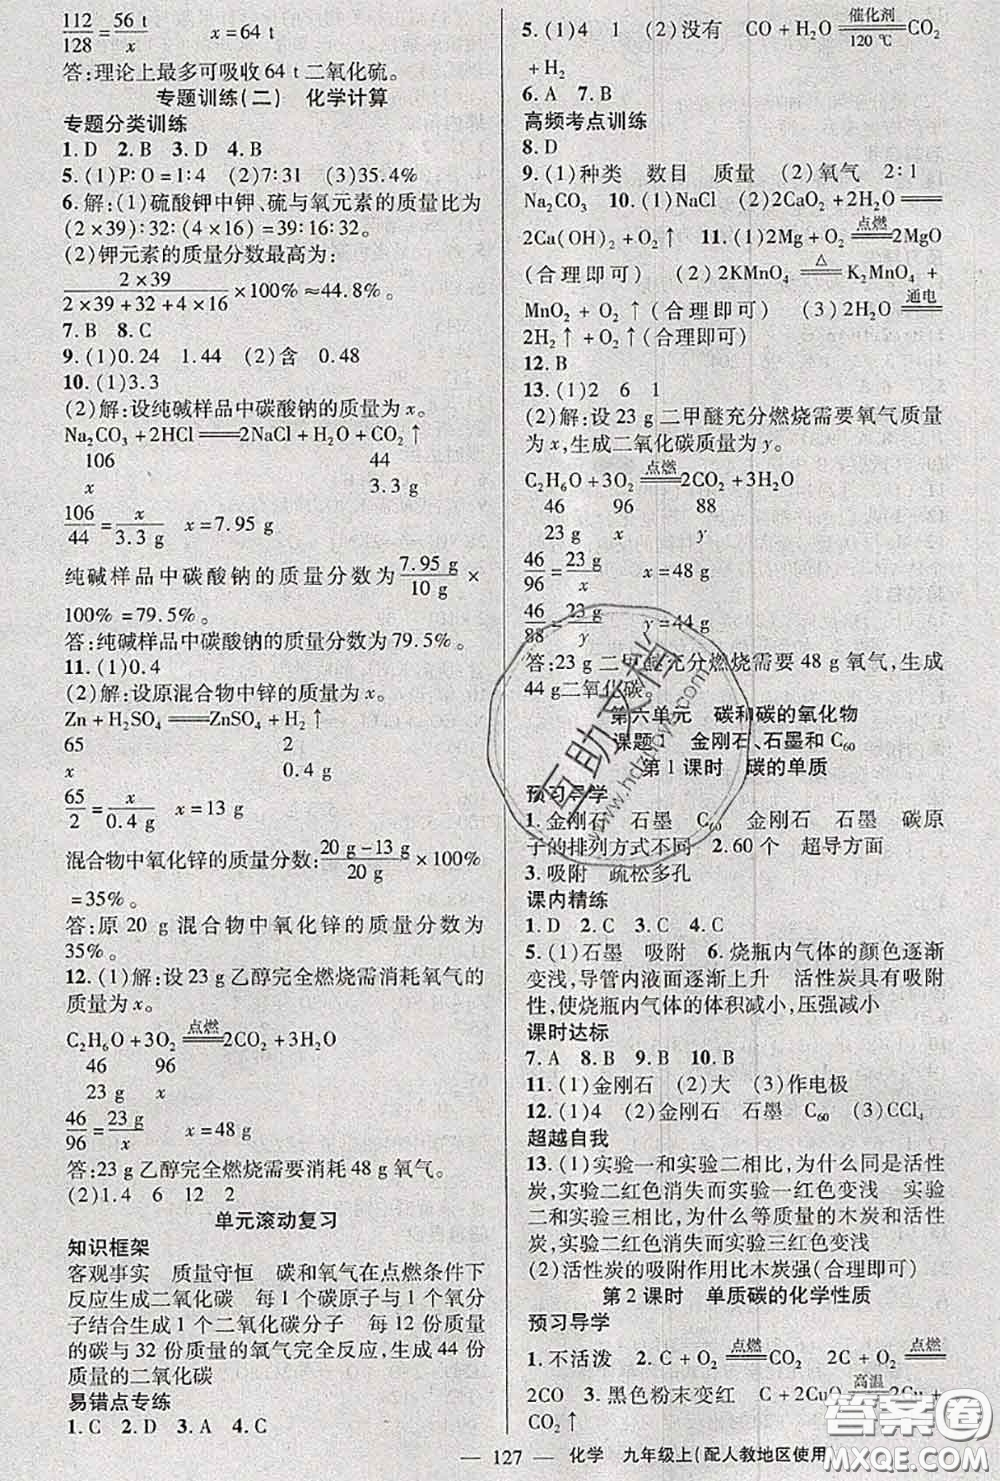 112/128=56 t/x x=64 t
答:理论上最多可吸收64 t二氧化硫。
专题训练(二) 化学计算
专题分类训练
1.D 2.B 3.D 4.B
5.(1)P:O=1:4 (2)7:31 (3)35.4%
6.解:(1)硫酸钾中钾、硫与氧元素的质量比为
(2×39):32:(4×16)=39:16:32。
(2)钾元素的质量分数最高为:
2×39/2×39+32+4×16×100%≈44.8%。
7.B 8.C
9.(1)0.24 1.44 (2)含 0.48
10.(1)3.3
(2)解:设纯碱样品中碳酸钠的质量为x。
Na₂CO₃+2HCl══2NaCl+H₂O+CO₂↑
106 44
x 3.3 g
106/44=x/3.3 g x=7.95 g
纯碱样品中碳酸钠的质量分数为7.95 g/10 g×
100%=79.5%。
答:纯碱样品中碳酸钠的质量分数为79.5%。
11.(1)0.4
(2)解:设原混合物中锌的质量为x。
Zn+H₂SO₄══ZnSO₄+H₂↑
65 2
x 0.4 g
65/2=x/0.4 g x=13 g
混合物中氧化锌的质量分数:20 g-13 g/20 g×100%
=35%。
答:原20 g混合物中氧化锌的质量分数为
35%。
12.(1)解:设23 g乙醇完全燃烧需消耗氧气的
质量为x。
C₂H₆O+3O₂═点燃═2CO₂+3H₂O
46 96
23 g x
46/96=23 g/x x=48 g
答:23 g乙醇完全燃烧需要消耗48 g氧气。
(2)1.4 6 12 2
单元滚动复习
知识框架
客观事实 质量守恒 碳和氧气在点燃条件下
反应生成二氧化碳 每1个碳原子与1个氧分
子结合生成1个二氧化碳分子 每12份质量
的碳与32份质量的氧气完全反应,生成44份
质量的二氧化碳
易错点专练
1.C 2.D 3.A 4.C
5.(1)4 1 (2)没有 CO+H₂O═催化剂/120 ℃═CO₂
+H₂
6.A 7.B
高频考点训练
8.D
9.(1)种类 数目 质量 (2)氧气 2:1
Na₂CO₃ 10.(1)NaCl (2)2CaO₂+2H₂O══
2Ca(OH)₂+O₂↑ 11.(1)2Mg+O₂═点燃═2MgO
(合理即可) (2)2KMnO₄═△═K₂MnO₄+
MnO₂+O₂↑(合理即可) (3)2H₂O═通电═
2H₂↑+O₂↑(合理即可)
12.B
13.(1)2 6 1
(2)解:设23 g二甲醚充分燃烧需要氧气质量
为x,生成二氧化碳质量为y。
C₂H₆O+3O₂═点燃═2CO₂+3H₂O
46 96 88
23 g x y
46/96=23 g/x x=48 g
46/88=23 g/y y=44 g
答:23 g二甲醚充分燃烧需要48 g氧气,生成
44 g二氧化碳。
第六单元 碳和碳的氧化物
课题1 金刚石、石墨和C₆₀
第1课时 碳的单质
预习导学
1.金刚石 石墨 C₆₀ 金刚石 石墨 碳原
子的排列方式不同 2.60个 超导方面
3.吸附 疏松多孔
课内精练
1.D 2.C 3.C 4.C
5.(1)石墨 吸附 6.烧瓶内气体的颜色逐渐
变浅,导管内液面逐渐上升 活性炭具有吸附
性,使烧瓶内气体的体积减小,压强减小
课时达标
7.A 8.B 9.B 10.B
11.(1)金刚石 (2)大 (3)作电极
12.(1)4 (2)金刚石 石墨 C₆₀ (3)CCl₄
超越自我
13.(1)实验一和实验二相比,为什么同是活性
炭,实验二红色消失而实验一红色变浅 实验
二和实验三相比,为什么等质量的木炭和活性
炭,实验二红色消失而实验三红色变浅
(2)活性炭的吸附作用比木炭强(合理即可)
第2课时 单质碳的化学性质
预习导学
1.不活泼 2.C+O₂═点燃═CO₂ 2C+O₂═点燃═
2CO 3.黑色粉末变红 C+2CuO═高温═2Cu+
CO₂↑
— 127 — 化学 九年级上(配人教地区使用
互助文档
www.hdzuoye.com
答案圈
MXQE.COM